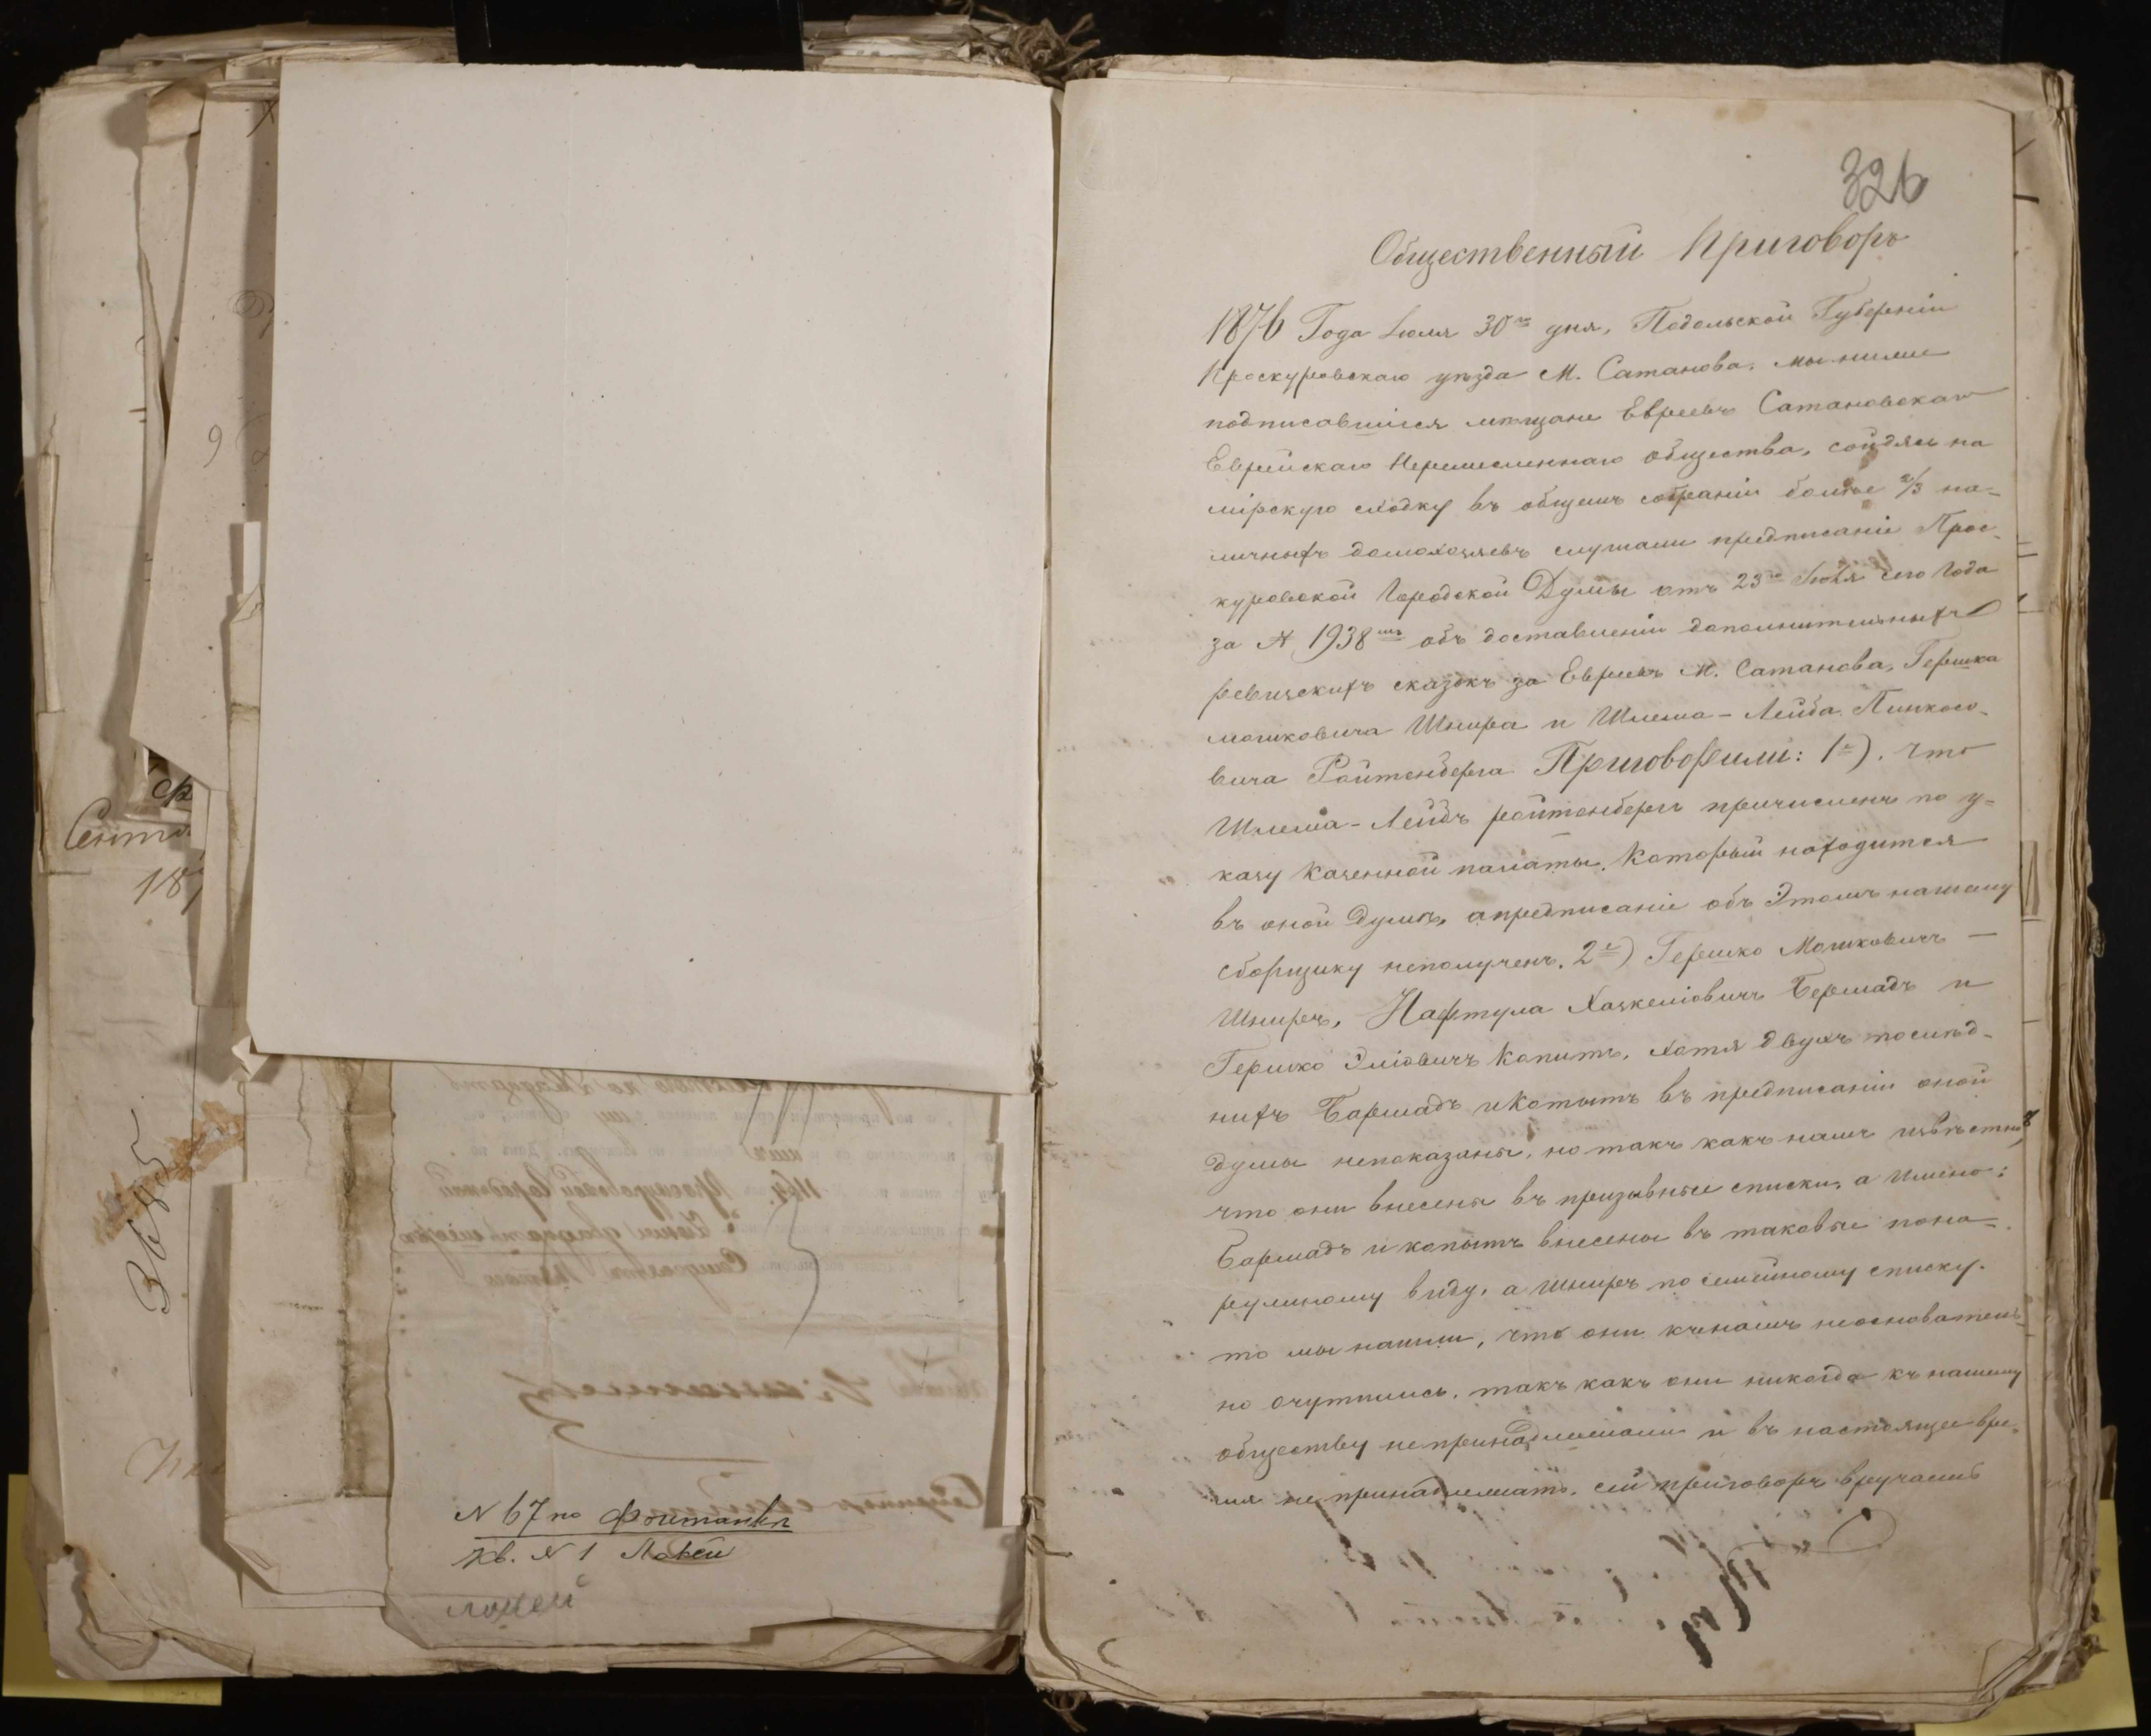 326
Общественный Приговоръ
1876 Года Іюля 30го дня, Подольской Губерніи
Проскуровскаго уѣзда М. Сатанова, мы ниже
подписавшіеся мѣщане Евреевъ Сатановскаго
Еврейскаго Неремесленнаго общества, сойдясь на
мірскую сходку въ общемъ собраніи болѣе 2/3 на-
личныхъ домохозяевъ слушали предписаніе Прос-
куровской Городской Думы отъ 23го Іюля сего Года
за № 1938мъ объ доставленіи дополнительныхъ
ревизскихъ сказокъ за Евреевъ М. Сатанова, Гершка
мошковича Шнира и Шлема-Лейба Пинкасо-
вича Ройтенберга Приговорили: 1е). что
Шлема-Лейбъ ройтенбергъ причисленъ по у-
казу казенной палаты, который находится
въ оной Думѣ, а предписаніе объ Этомъ нашему
сборщику неполученъ. 2е) Гершко Мошковичъ —
Шниръ, Нафтула Хаскеліовичъ Бершадъ и
Гершко Эліовичъ Копытъ, хотя двухъ послѣд-
нихъ Баршадъ и Копытъ въ предписаніи оной
думы непоказаны, но такъ какъ намъ извѣстно
что они внесены въ призывные списки, а имено:
Баршадъ и копытъ внесены въ таковые пона-
ружному виду, а Шниръ по семейному списку.
то мы нашли, что они къ намъ неоснователь-
но очутились, такъ какъ они никогда къ нашему
обществу непринадлежали и въ настоящее вре-
мя не принадлежатъ, сей приговоръ вручаемъ
N 67 по Фонтанкѣ
кв. № 1 Лакей
лакей
Сентя
187
3685
9